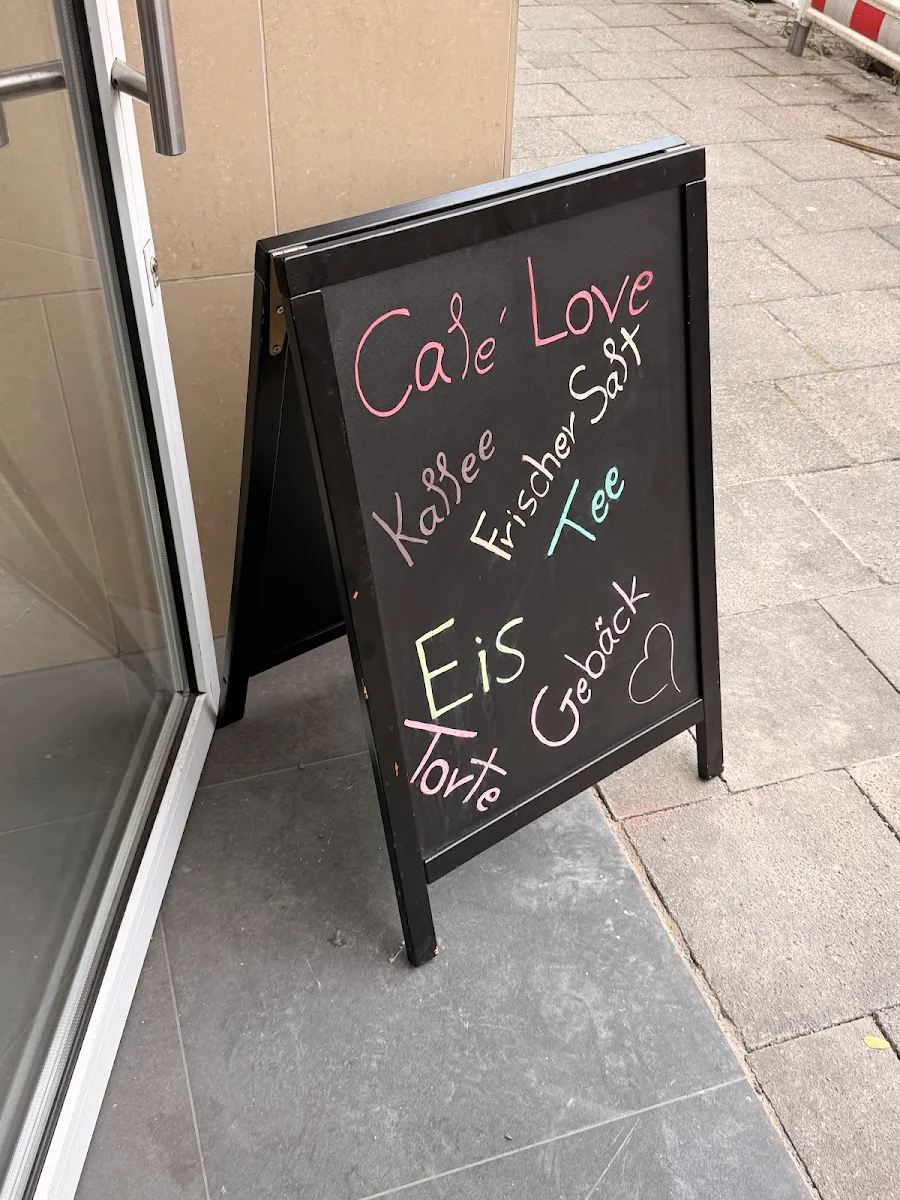 Café Love
Kaffee
Frischer Saft
Tee
Eis
Gebäck
Torte